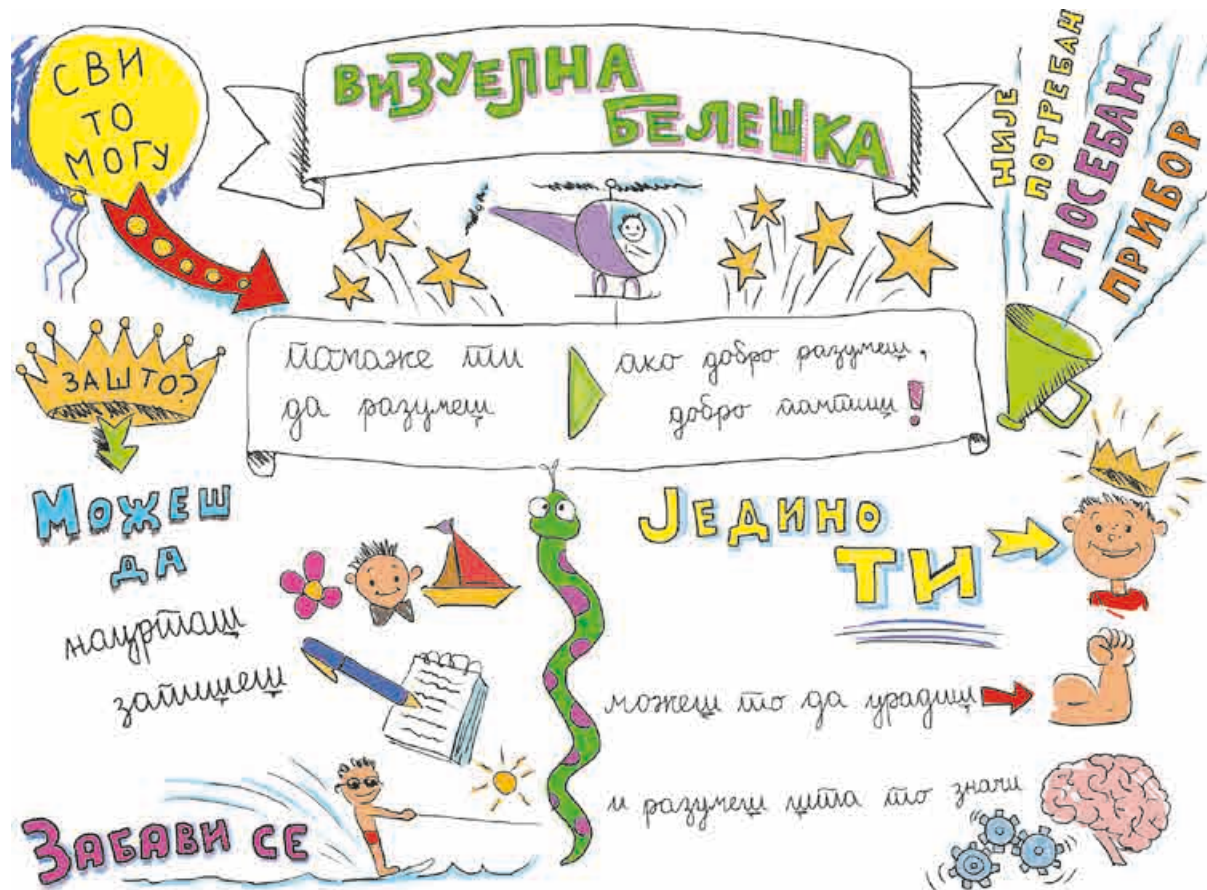 СВИ
ТО
МОГУ
ВИЗУЕЛНА
БЕЛЕШКА
НИЈЕ
ПОТРЕБАН
ПОСЕБАН
ПРИБОР
ЗАШТО?
помаже ти
да разумеш
ако добро разумеш,
добро памтиш!
МОЖЕШ
ДА
нацрташ
запишеш
ЗАБАВИ СЕ
ЈЕДИНО
ТИ
можеш то да урадиш
и разумеш шта то значи